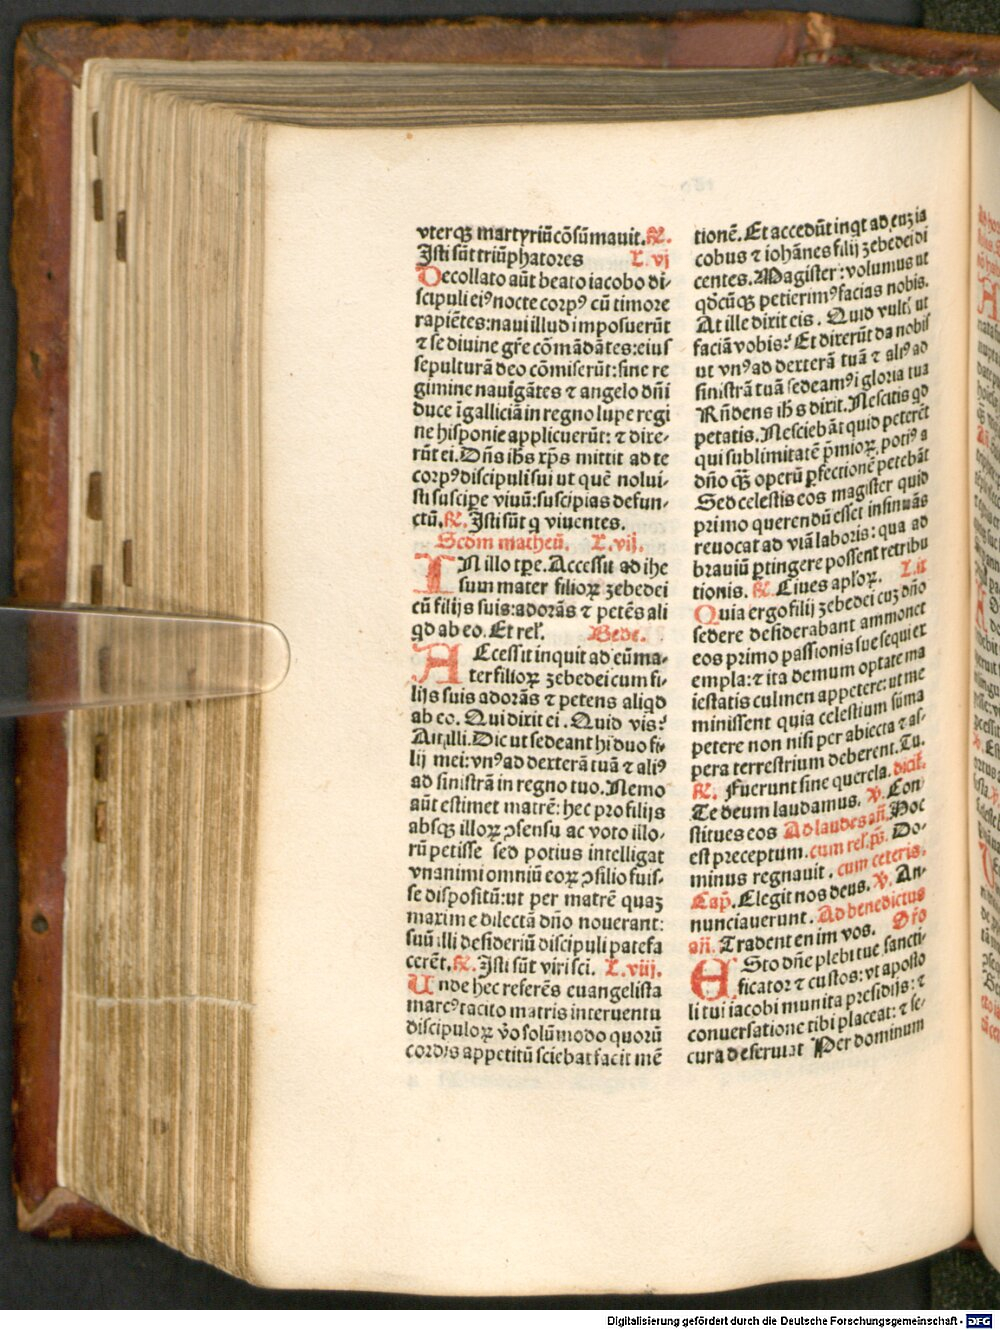 vterqꝫ martyriū cōsūmauit. ℟.
Isti sūt triūphatores L. vj
Decollato aūt beato iacobo di-
scipuli ei⁹ nocte corp⁹ cū timore
rapiētes: naui illud imposuerūt
⁊ se diuine gr̄e cōmādātes: eius
sepulturā deo cōmiserūt: sine re
gimine nauigātes ⁊ angelo dn̄i
duce ī galliciā in regno lupe regi
ne hisponie applicuerūt: ⁊ dixe-
rūt ei. Dn̄s ih̄s xp̄s mittit ad te
corp⁹ discipuli sui ut quē nolui-
sti suscipe viuū: suscipias defun-
ctū. ℟. Isti sūt q viuentes.
Scdm matheū. L. vij.
IN illo tp̄e. Accessit ad ihe
sum mater filioꝝ zebedei
cū filijs suis: adorās ⁊ petēs ali
qd ab eo. Et rel̄. Bede.
ACcessit inquit ad eū ma-
ter filioꝝ zebedei cum fi-
lijs suis adorās ⁊ petens aliqd
ab eo. Qui dixit ei. Quid vis?
Ait illi. Dic ut sedeant hi duo fi-
lij mei: vn⁹ ad dexterā tuā ⁊ ali⁹
ad sinistrā in regno tuo. Nemo
aūt estimet matrē: hec pro filijs
absqꝫ illoꝝ ꝯsensu ac voto illo-
rū petisse sed potius intelligat
vnanimi omniū eoꝝ ꝯsilio fuis-
se dispositū: ut per matrē quaꝫ
maxime dilectā dn̄o nouerant:
suū illi desideriū discipuli patefa
cerēt. ℟. Isti sūt viri sci. L. viij.
Unde hec referēs euangelista
marc⁹ tacito matris interuentu
discipuloꝝ v̄o solūmodo quorū
cordis appetitū sciebat facit mē
tionē. Et accedūt inqt ad euꝫ ia
cobus ⁊ iohānes filij zebedei di
centes. Magister: volumus ut
qdcūqꝫ petierim⁹ facias nobis.
At ille dixit eis. Quid vult̄ ut
faciā vobis? Et dixerūt da nobis
ut vn⁹ ad dexterā tuā ⁊ ali⁹ ad
sinistrā tuā sedeam⁹ ī gloria tua
Rn̄dens ih̄s dixit. Nescitis qd
petatis. Nesciebāt quid peterēt
qui sublimitatē p̄mioꝝ, poti⁹ a
dn̄o qꝫ̄ operū ꝑfectionē petebāt
Sed celestis eos magister quid
primo querendū esset insinuās
reuocat ad viā laboris: qua ad
brauiū ꝑtingere possent retribu
tionis. ℟. Ciues apl̄oꝝ. L. ix
Quia ergo filij zebedei cuꝫ dn̄o
sedere desiderabant ammonet
eos primo passionis sue sequi ex
empla: ⁊ ita demum optate ma
iestatis culmen appetere: ut me
minissent quia celestium sūma
petere non nisi per abiecta ⁊ as-
pera terrestrium deberent. Tu.
℟. Fuerunt sine querela. dicit̄.
Te deum laudamus. ℣. Con
stitues eos Ad laudes an̄. Hoc
est preceptum. cum rel̄. ps̄. Do-
minus regnauit. cum ceteris.
Cap̄. Elegit nos deus. ℣. An-
nunciauerunt. Ad benedictus
an̄. Tradent enim vos. Or̄o
ESto dn̄e plebi tue sancti-
ficator ⁊ custos: vt aposto
li tui iacobi munita presidijs: ⁊
conuersatione tibi placeat: ⁊ se-
cura deseruiat Per dominum
Digitalisierung gefördert durch die Deutsche Forschungsgemeinschaft - DFG